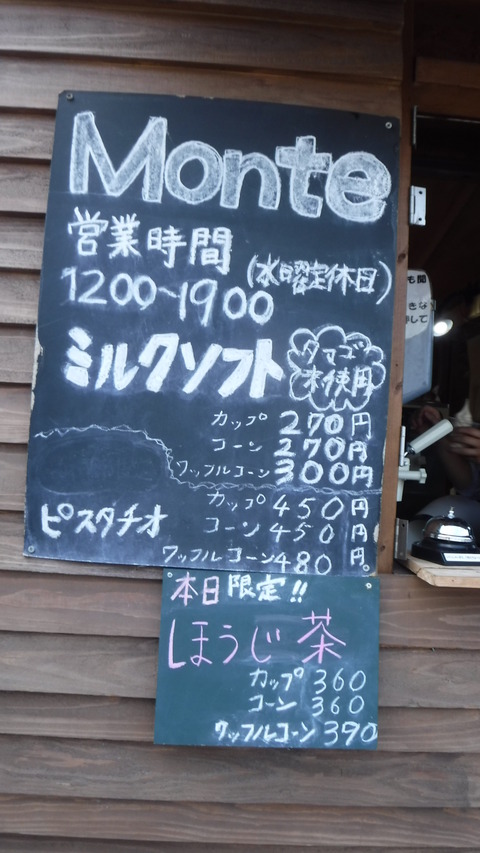 Monte
営業時間
(水曜定休日)
1200~1900
ミルクソフト
タマゴ
未使用
カップ 270円
コーン 270円
ワッフルコーン 300円
ピスタチオ
カップ 450円
コーン 450円
ワッフルコーン 480円
本日限定!!
ほうじ茶
カップ 360
コーン 360
ワッフルコーン 390